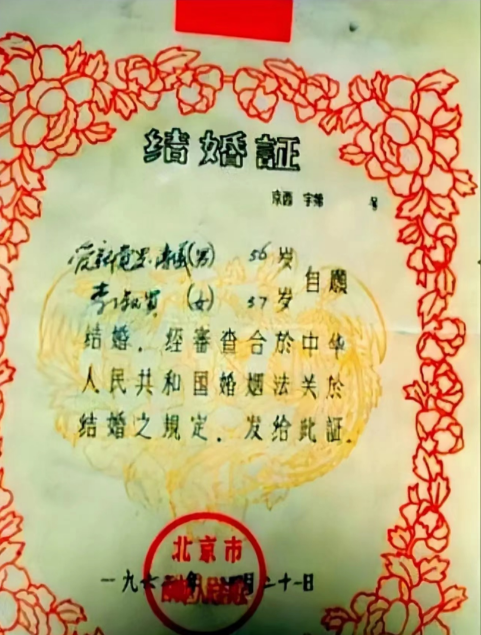 结婚証
京西 字第 号
爱新觉罗·溥儀(男) 56岁
李淑贤 (女) 37岁
自願
结婚．经審查合於中华
人民共和国婚姻法关於
结婚之規定．发给此証．
北京市
一九六 年 月二十一日